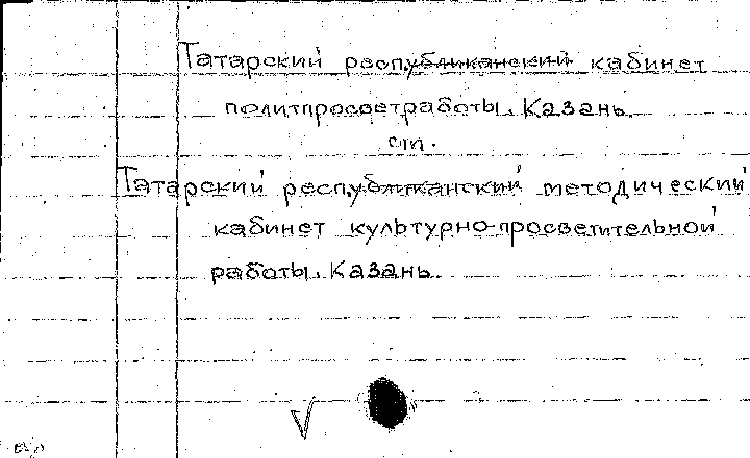 Татарский республиканский кабинет
политпросветработы. Казань.
см.
Татарский республиканский методический
кабинет культурно-просветительной
работы. Казань.